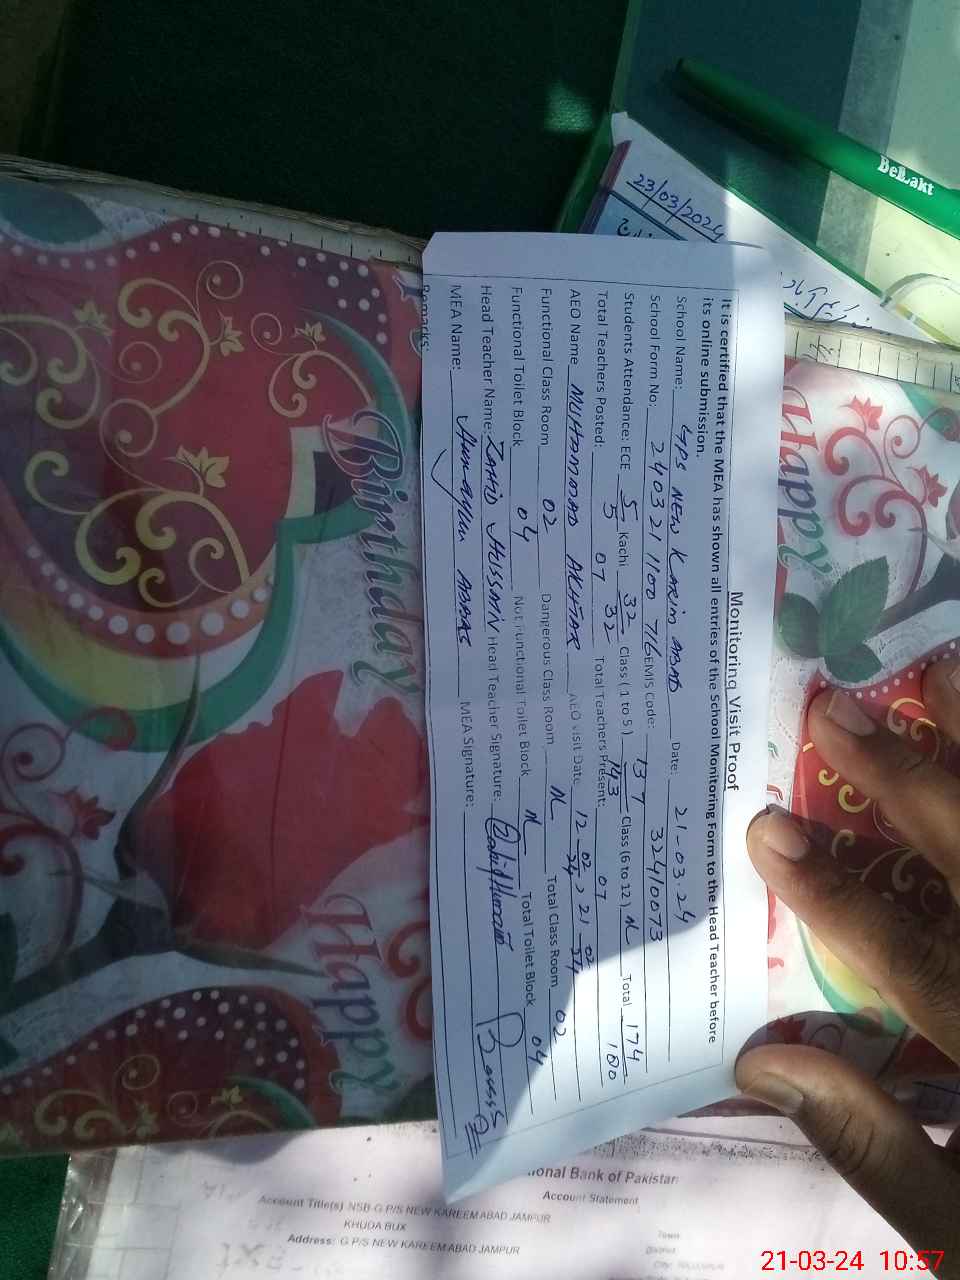 BeLakt
23/03/2024
Monitoring Visit Proof
It is certified that the MEA has shown all entries of the School Monitoring Form to the Head Teacher before
its online submission.
School Name: GPS NEW KARIM ABAD Date: 21-03.24
School Form No: 2403211100716 EMIS Code: 32410073
Students Attendance: ECE 5/5 Kachi 32/32 Class (1 to 5) 137/143 Class (6 to 12) N Total 174/180
Total Teachers Posted: 07 Total Teachers Present: 07
AEO Name MUHAMMAD AKHTAR AEO visit Date 12-02/24, 21
Functional Class Room 02 Dangerous Class Room N Total Class Room 02
Functional Toilet Block 04 Not Functional Toilet Block N Total Toilet Block 04
Head Teacher Name: ZAHID HUSSAIN Head Teacher Signature:
MEA Name: Humayun ABBAS MEA Signature:
Remarks:
Happy
Birthday
Happy
ional Bank of Pakistan
Account Statement
Account Title(s) NSB G P/S NEW KAREEM ABAD JAMPUR
KHUDA BUX
Address: G P/S NEW KAREEM ABAD JAMPUR
21-03-24 10:57